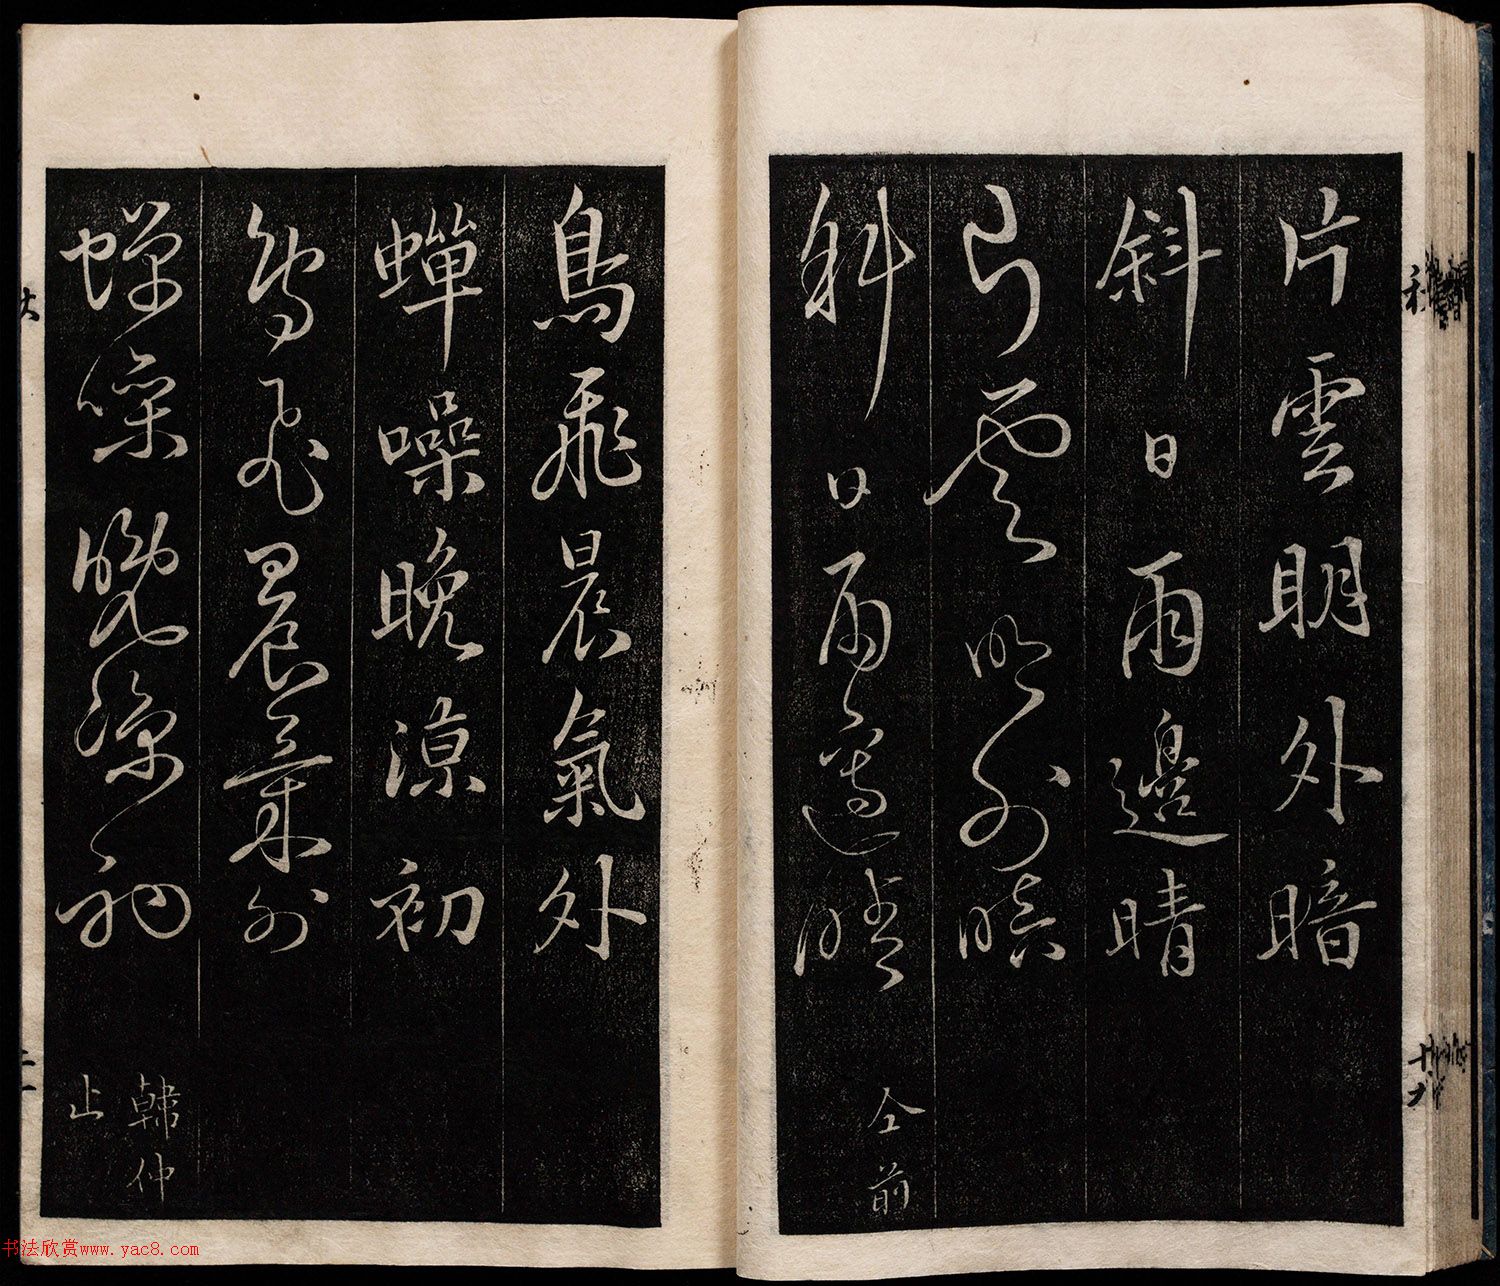 片雲明外暗
斜日雨邊晴
片雲明外暗
斜日雨邊晴
仝前
鳥飛晨氣外
蟬噪晚涼初
鳥飛晨氣外
蟬噪晚涼初
韓仲
止
利
十九
二一
书法欣赏www.yac8.com